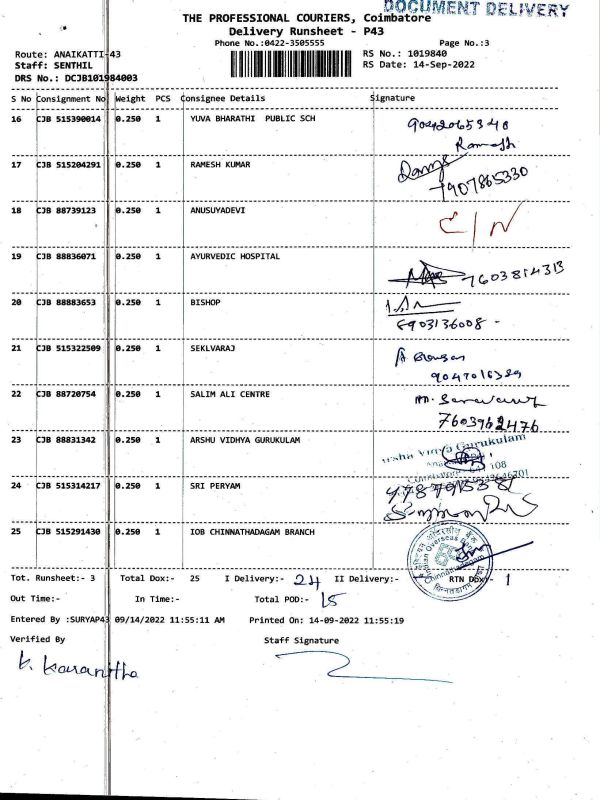 DOCUMENT DELIVERY
THE PROFESSIONAL COURIERS, Coimbatore
Delivery Runsheet - P43
Phone No.:0422-3505555 Page No.:3
Route: ANAIKATTI-43 RS No.: 1019840
Staff: SENTHIL RS Date: 14-Sep-2022
DRS No.: DCJB101984003
S No Consignment No Weight PCS Consignee Details Signature
16 CJB 515390014 0.250 1 YUVA BHARATHI PUBLIC SCH
9042065340
Ramesh
17 CJB 515204291 0.250 1 RAMESH KUMAR
7907865330
18 CJB 88739123 0.250 1 ANUSUYADEVI
C/N
19 CJB 88836071 0.250 1 AYURVEDIC HOSPITAL
7603814313
20 CJB 88883653 0.250 1 BISHOP
8903136008 -
21 CJB 515322509 0.250 1 SEKLVARAJ
9047016389
22 CJB 88720754 0.250 1 SALIM ALI CENTRE
7603962476
23 CJB 88831342 0.250 1 ARSHU VIDHYA GURUKULAM
Arsha Vidya Gurukulam
108
24 CJB 515314217 0.250 1 SRI PERYAM
25 CJB 515291430 0.250 1 IOB CHINNATHADAGAM BRANCH
Indian Overseas Bank
Chinnathadagam
Tot. Runsheet:- 3 Total Dox:- 25 I Delivery:- 24 II Delivery:- RTN Dox:- 1
Out Time:- In Time:- Total POD:- 15
Entered By :SURYAP43 09/14/2022 11:55:11 AM Printed On: 14-09-2022 11:55:19
Verified By Staff Signature
K. Karanitha